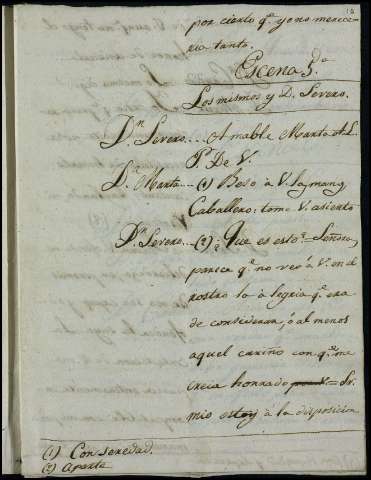 por cierto qe. yo no merece-
ria tanto.
Escena 5.a
Los mismos y D. Severo.
Dn. Severo... Amable Marta A. L.
P.s De V.
D.a Marta... (1) Beso à V. la mano,
Caballero: tome V. asiento
Dn. Severo... (2) ¿Que es esto? Señora,
parece qe. no veo à V. en el
rostro la alegria qe. era
de considerar, ó al menos
aquel cariño con qe. me
creia honrado por V. = Sr.
mio estoy à la disposicion
(1) Con seriedad.
(2) Aparte